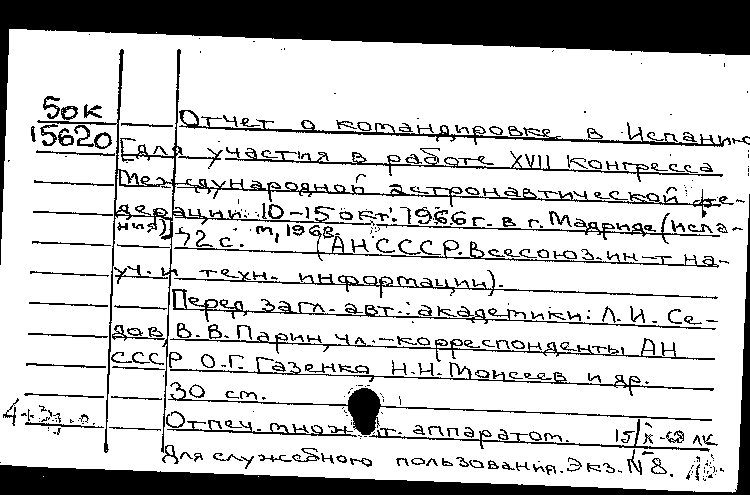 50К
15620
Отчет о командировке в Испанию
[для участия в работе XVII Конгресса
Международной астронавтической фе-
дерации. 10-15 окт. 1966 г. в г. Мадриде (Испа-
ния)]
М., 1968.
72 с. (АН СССР. Всесоюз. ин-т на-
уч. и техн. информации).
Перед загл. авт.: академики: Л. И. Се-
дов, В. В. Парин, чл.-корреспонденты АН
СССР О. Г. Газенко, Н. Н. Моисеев и др.
30 см.
Отпеч. множ. аппаратом. 15/X-68 лк
Для служебного пользования. Экз. N 8.